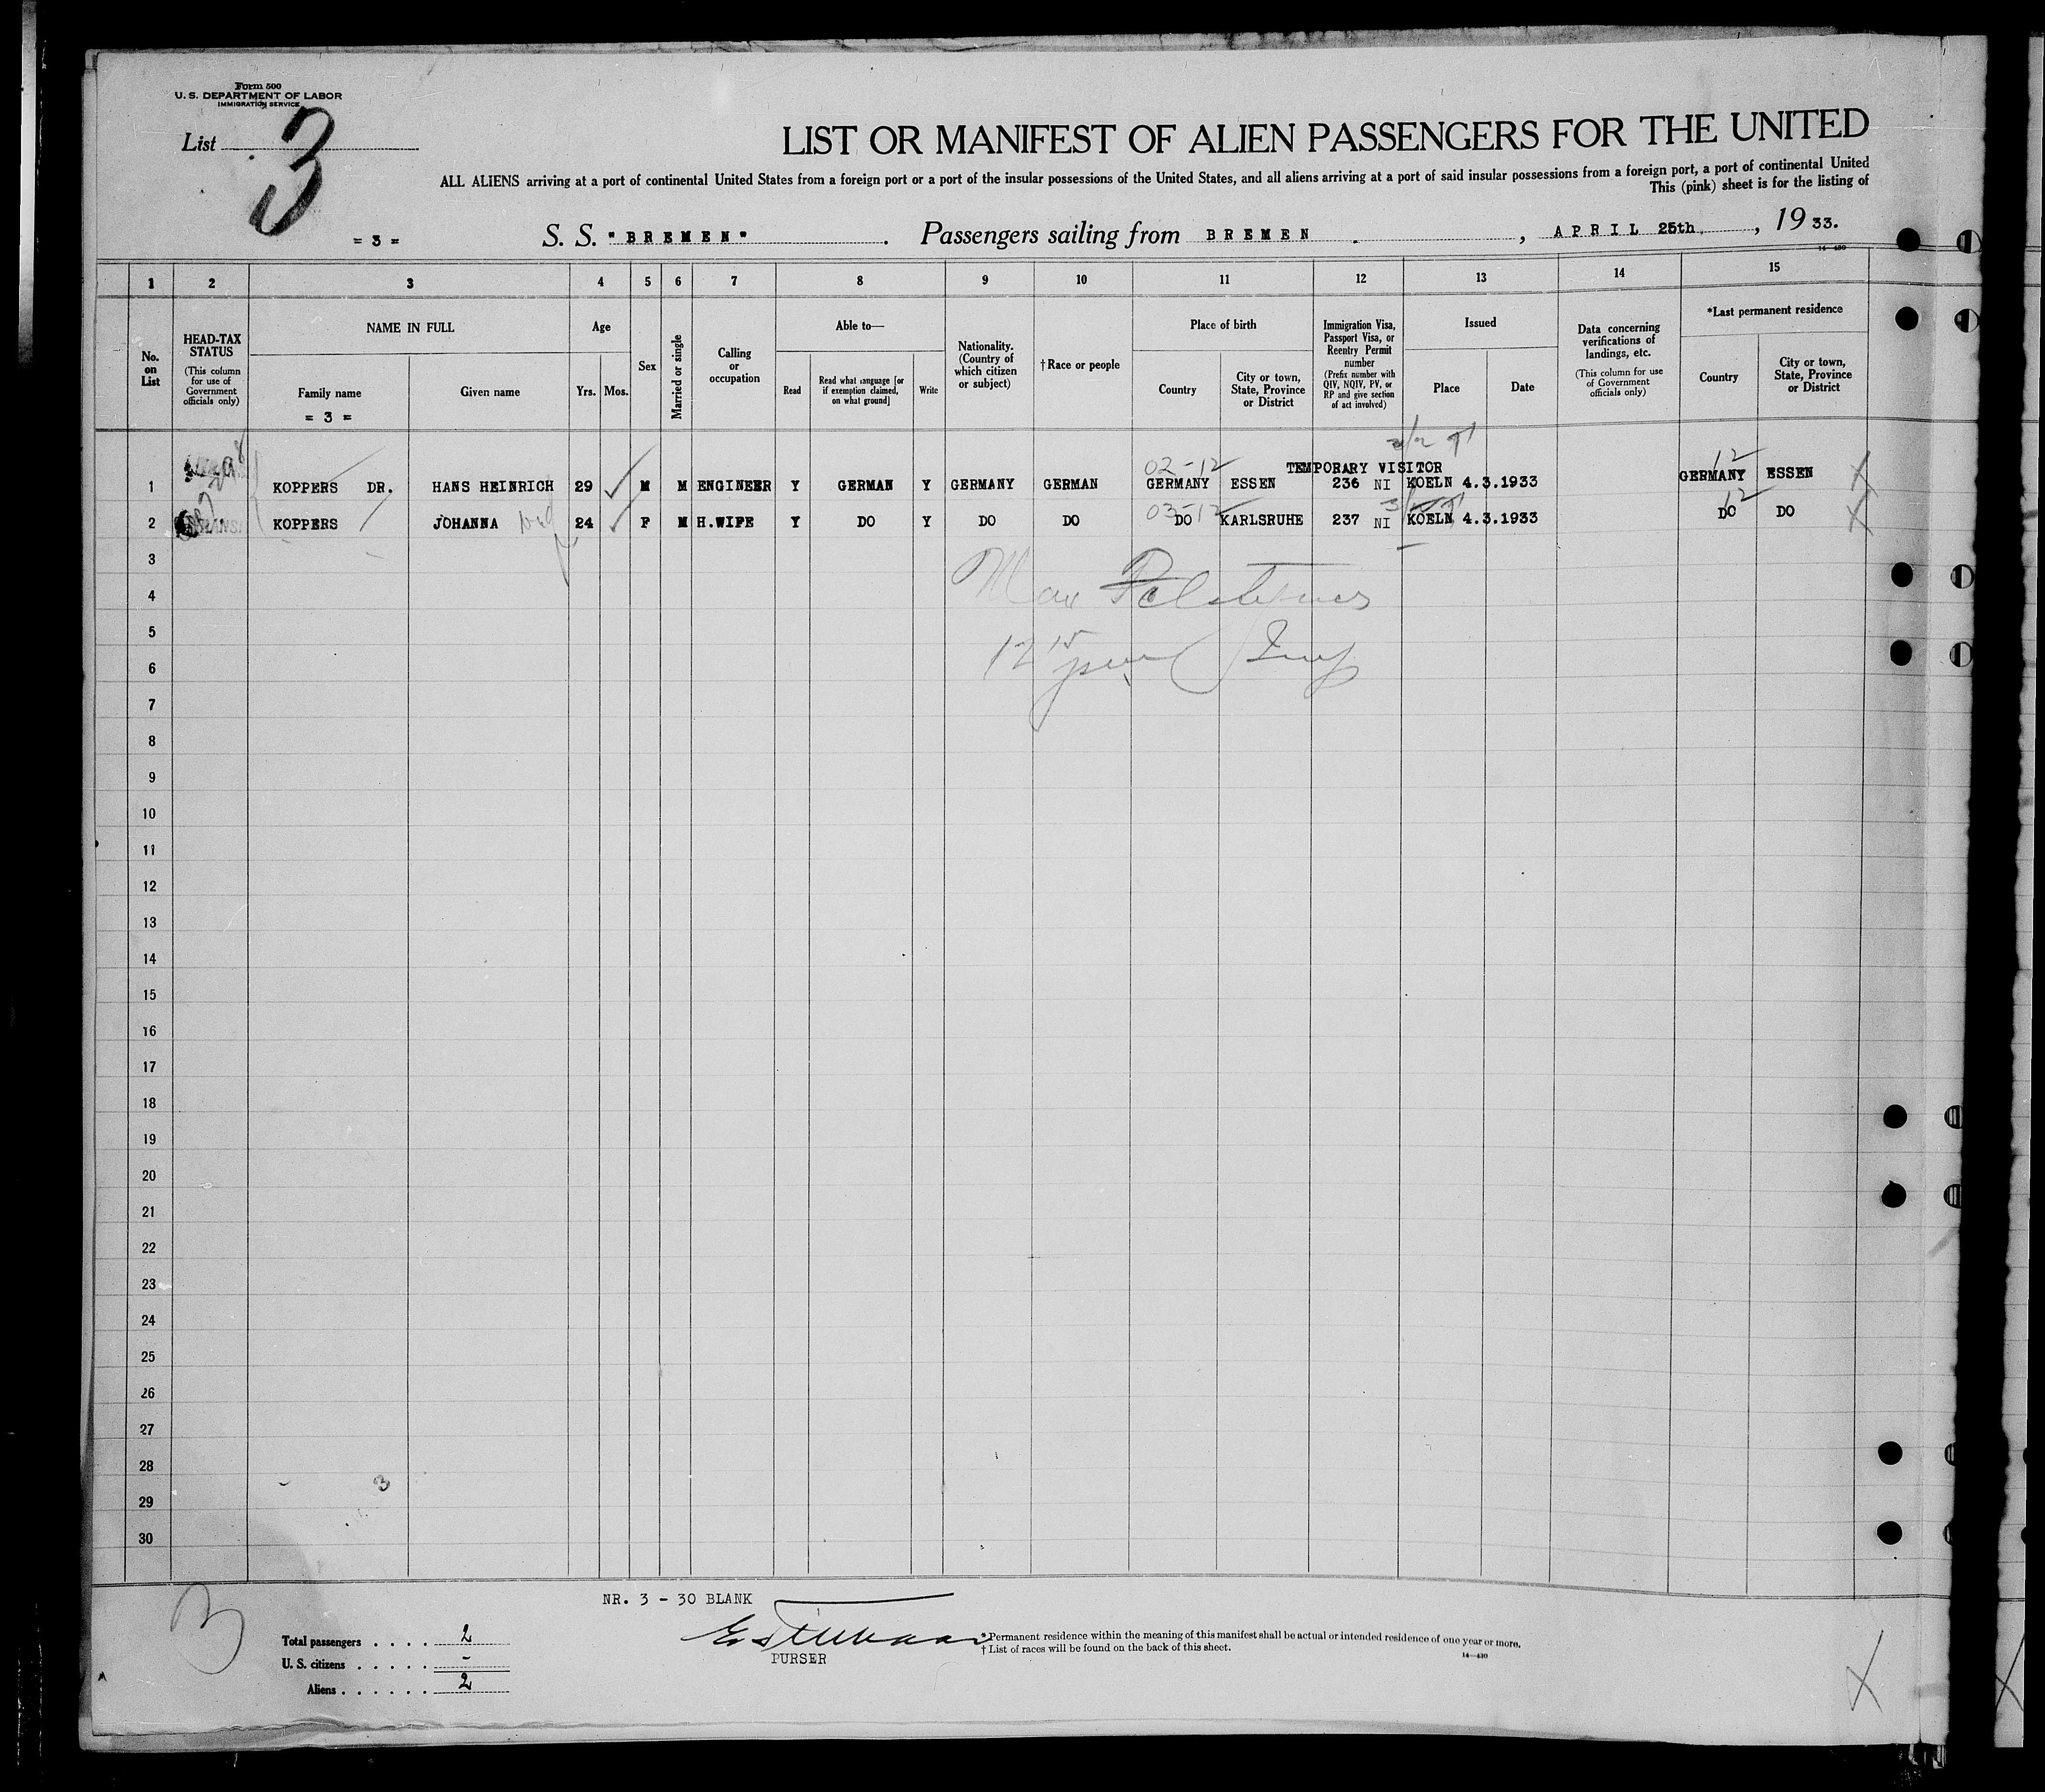 Form 500
U. S. DEPARTMENT OF LABOR
IMMIGRATION SERVICE
List 3
LIST OR MANIFEST OF ALIEN PASSENGERS FOR THE UNITED
ALL ALIENS arriving at a port of continental United States from a foreign port or a port of the insular possessions of the United States, and all aliens arriving at a port of said insular possessions from a foreign port, a port of continental United
This (pink) sheet is for the listing of
= 3 = S. S. "BREMEN". Passengers sailing from BREMEN, APRIL 25th, 1933.
14—430
1 2 3 4 5 6 7 8 9 10 11 12 13 14 15
No. on List
HEAD-TAX STATUS
(This column for use of Government officials only)
NAME IN FULL
Family name
= 3 =
Given name
Age
Yrs. Mos.
Sex
Married or single
Calling or occupation
Able to—
Read
Read what language [or if exemption claimed, on what ground]
Write
Nationality. (Country of which citizen or subject)
†Race or people
Place of birth
Country
City or town, State, Province or District
Immigration Visa, Passport Visa, or Reentry Permit number
(Prefix number with QIV, NQIV, PV, or RP and give section of act involved)
Issued
Place
Date
Data concerning verifications of landings, etc.
(This column for use of Government officials only)
*Last permanent residence
Country
City or town, State, Province or District
02-12 TEMPORARY VISITOR 12
1 KOPPERS DR. HANS HEINRICH 29 M M ENGINEER Y GERMAN Y GERMANY GERMAN GERMANY ESSEN 236 NI KOELN 4.3.1933 GERMANY ESSEN
03-12 12
2 KOPPERS JOHANNA 24 F M H.WIFE Y DO Y DO DO DO KARLSRUHE 237 NI KOELN 4.3.1933 DO DO
3
4
5
6
7
8
9
10
11
12
13
14
15
16
17
18
19
20
21
22
23
24
25
26
27
28
3
29
30
NR. 3 - 30 BLANK
3
PURSER
Total passengers . . . . 2
U. S. citizens . . . . . -
Aliens . . . . . . 2
*Permanent residence within the meaning of this manifest shall be actual or intended residence of one year or more.
†List of races will be found on the back of this sheet.
14—430